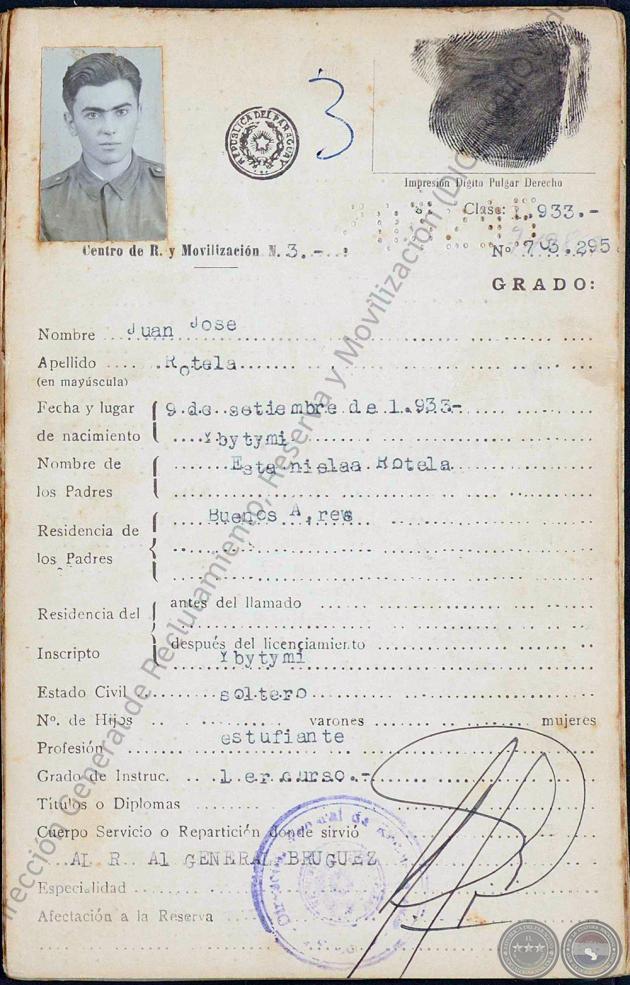 REPUBLICA DEL PARAGUAY
3
Impresión Dígito Pulgar Derecho
Clase: 1.933.-
Centro de R. y Movilización N. 3.-
Nº 703.295
GRADO:
Nombre Juan Jose
Apellido Rotela
(en mayúscula)
Fecha y lugar 9 de setiembre de 1.933-
de nacimiento Ybytymi
Nombre de Estanislaa Rotela
los Padres
Residencia de Buenos A,res
los Padres
Residencia del antes del llamado
Inscripto después del licenciamiento
Ybytymi
Estado Civil soltero
Nº. de Hijos varones mujeres
Profesión estufiante
Grado de Instruc. 1 er curso.-
Títulos o Diplomas
Cuerpo Servicio o Repartición donde sirvió
AL R. A1 GENERAL BRUGUEZ
Especialidad
Afectación a la Reserva
Dirección General de Reclutamiento, Reserva y Movilización